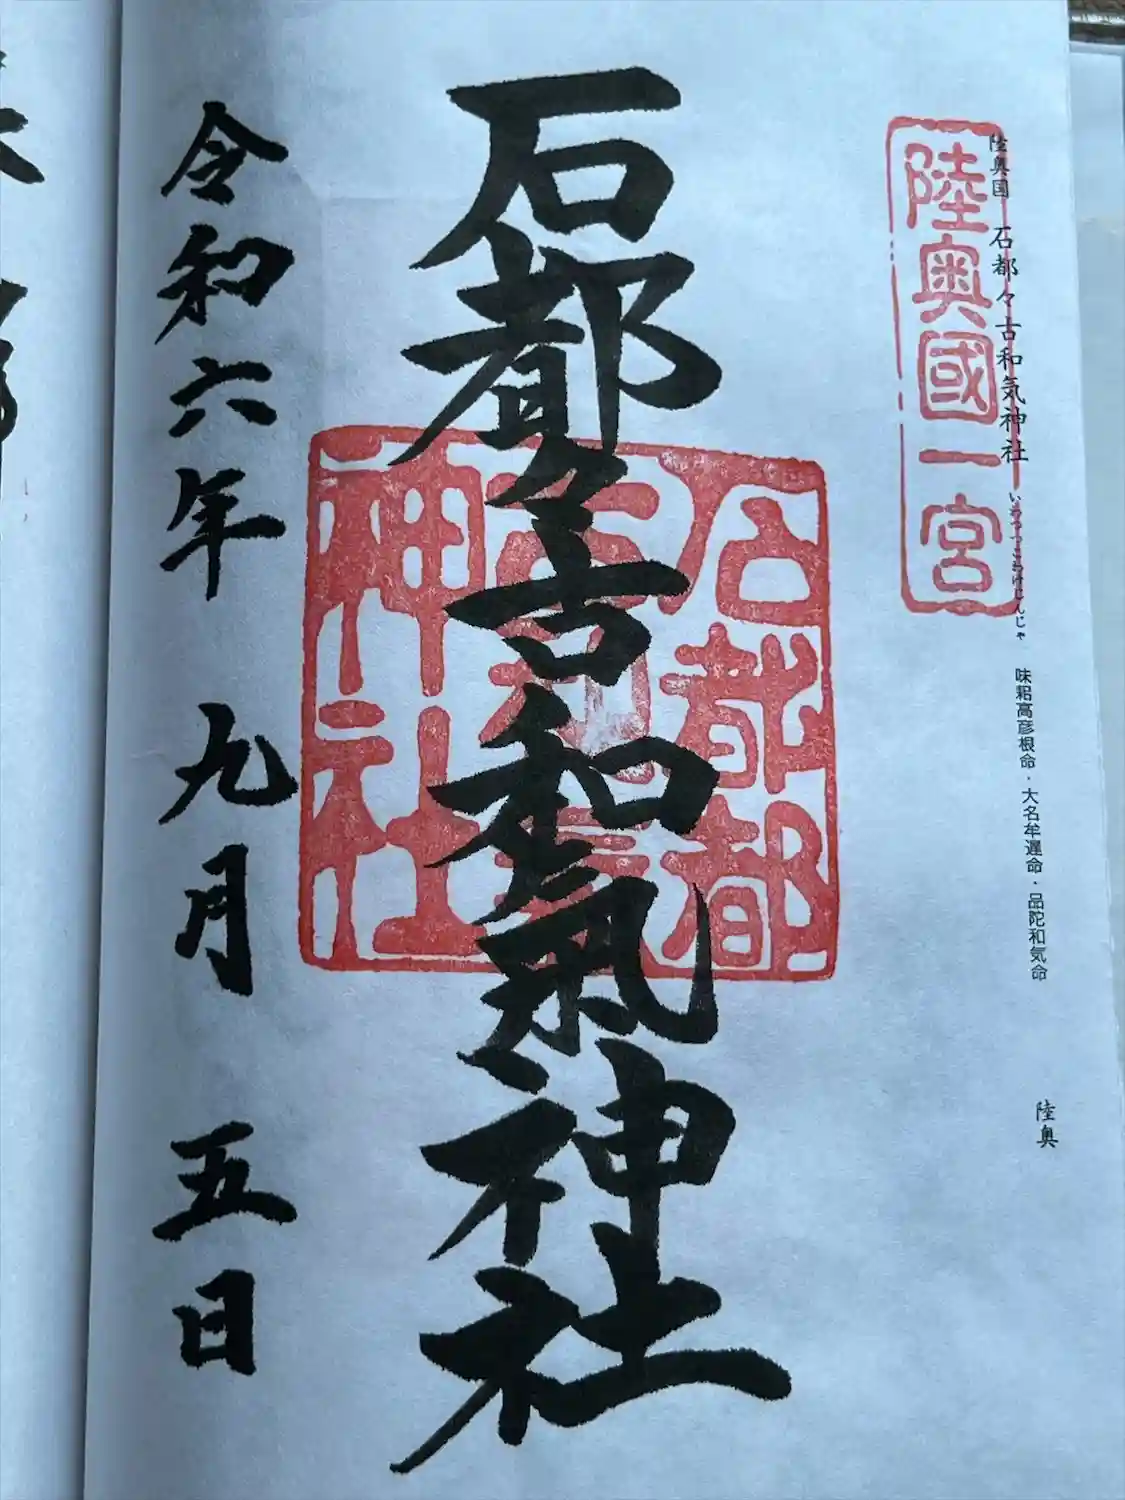 陸奥国 石都々古和気神社 いわつつこわけじんじゃ 味耜高彦根命・大名牟遅命・品陀和気命
陸奥
陸奥國一宮
石都々古和氣神社
石都都
神社
令和六年 九月 五日